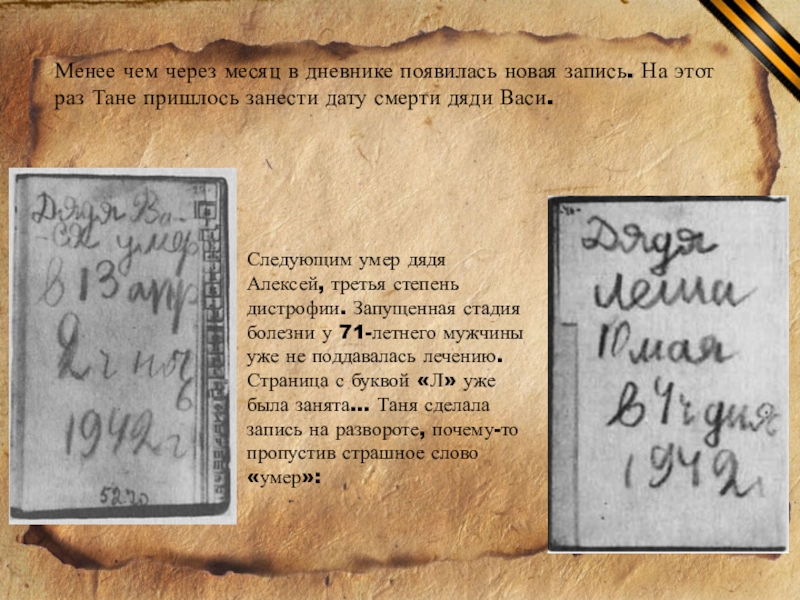 Менее чем через месяц в дневнике появилась новая запись. На этот
раз Тане пришлось занести дату смерти дяди Васи.
Дядя Ва-
-ся умер
в 13 апр
2 ч ноч
1942 г
Следующим умер дядя
Алексей, третья степень
дистрофии. Запущенная стадия
болезни у 71-летнего мужчины
уже не поддавалась лечению.
Страница с буквой «Л» уже
была занята... Таня сделала
запись на развороте, почему-то
пропустив страшное слово
«умер»:
Дядя
Леша
10 мая
в 4 ч дня
1942